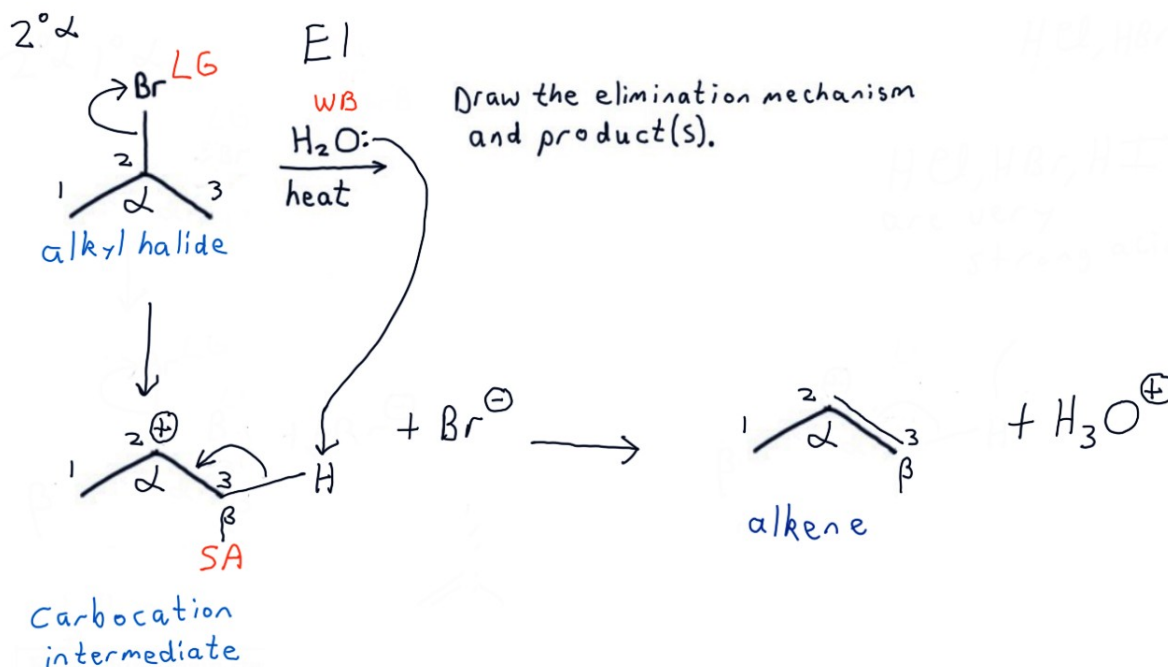 2° α
E1
Br LG
WB
H₂O:
heat
Draw the elimination mechanism
and product(s).
2
1
α
3
alkyl halide
2 ⊕
1
α
3
H
β
SA
+ Br⊖
Carbocation
intermediate
2
1
α
3
β
+ H₃O⊕
alkene